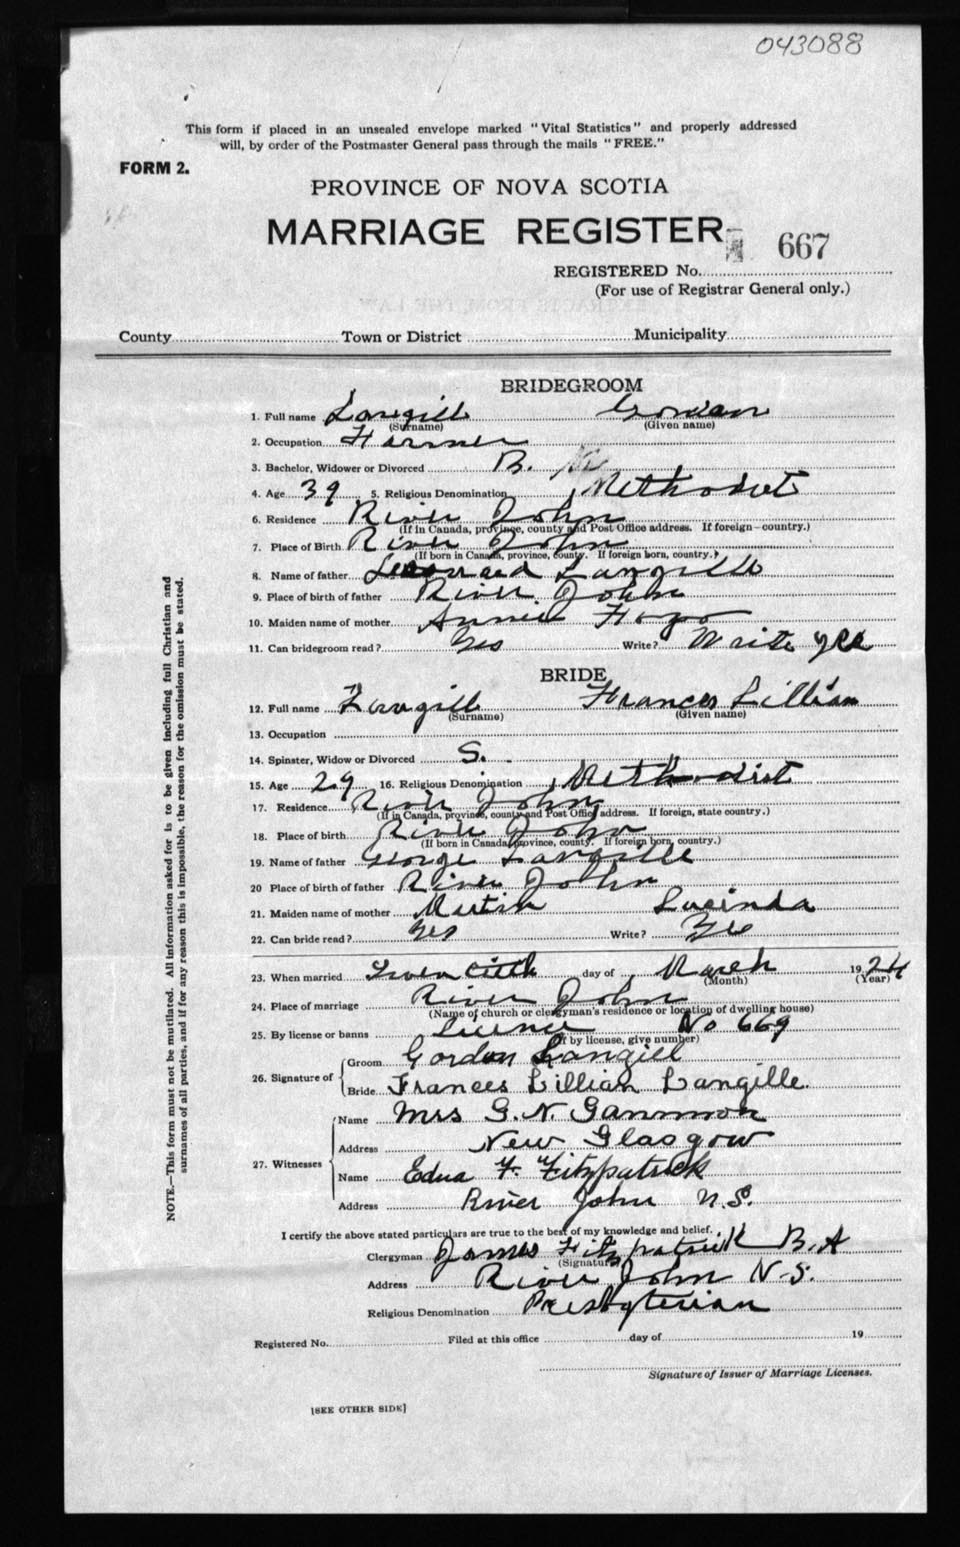 043088
This form if placed in an unsealed envelope marked "Vital Statistics" and properly addressed
will, by order of the Postmaster General pass through the mails "FREE."
FORM 2.
PROVINCE OF NOVA SCOTIA
MARRIAGE REGISTER
667
REGISTERED No.
(For use of Registrar General only.)
County Town or District Municipality
BRIDEGROOM
1. Full name Langill Gordon
(Surname) (Given name)
2. Occupation Farmer
3. Bachelor, Widower or Divorced B.
4. Age 39 5. Religious Denomination Methodist
6. Residence River John
(If in Canada, province, county and Post Office address. If foreign—country.)
7. Place of Birth River John
(If born in Canada, province, county. If foreign born, country.)
8. Name of father Langille
9. Place of birth of father River John
10. Maiden name of mother Annie
11. Can bridegroom read? Yes Write? Write yes
BRIDE
12. Full name Langill Frances Lillian
(Surname) (Given name)
13. Occupation
14. Spinster, Widow or Divorced S.
15. Age 29 16. Religious Denomination Methodist
17. Residence River John
(If in Canada, province, county and Post Office address. If foreign, state country.)
18. Place of birth River John
(If born in Canada, province, county. If foreign born, country.)
19. Name of father George Langille
20 Place of birth of father River John
21. Maiden name of mother Lucinda
22. Can bride read? Yes Write? Yes
23. When married day of March 1924
(Month) (Year)
24. Place of marriage River John
(Name of church or clergyman's residence or location of dwelling house)
25. By license or banns License No 669
(If by license, give number)
26. Signature of
Groom Gordon Langill
Bride Frances Lillian Langille.
27. Witnesses
Name Mrs G. N. Gammon
Address New Glasgow
Name Edna F. Fitzpatrick
Address River John N.S.
I certify the above stated particulars are true to the best of my knowledge and belief.
Clergyman James Fitzpatrick B.A
(Signature)
Address River John N-S.
Religious Denomination Presbyterian
Registered No. Filed at this office day of 19
Signature of Issuer of Marriage Licenses.
[SEE OTHER SIDE]
NOTE.—This form must not be mutilated. All information asked for is to be given including full Christian and
surnames of all parties, and if for any reason this is impossible, the reason for the omission must be stated.